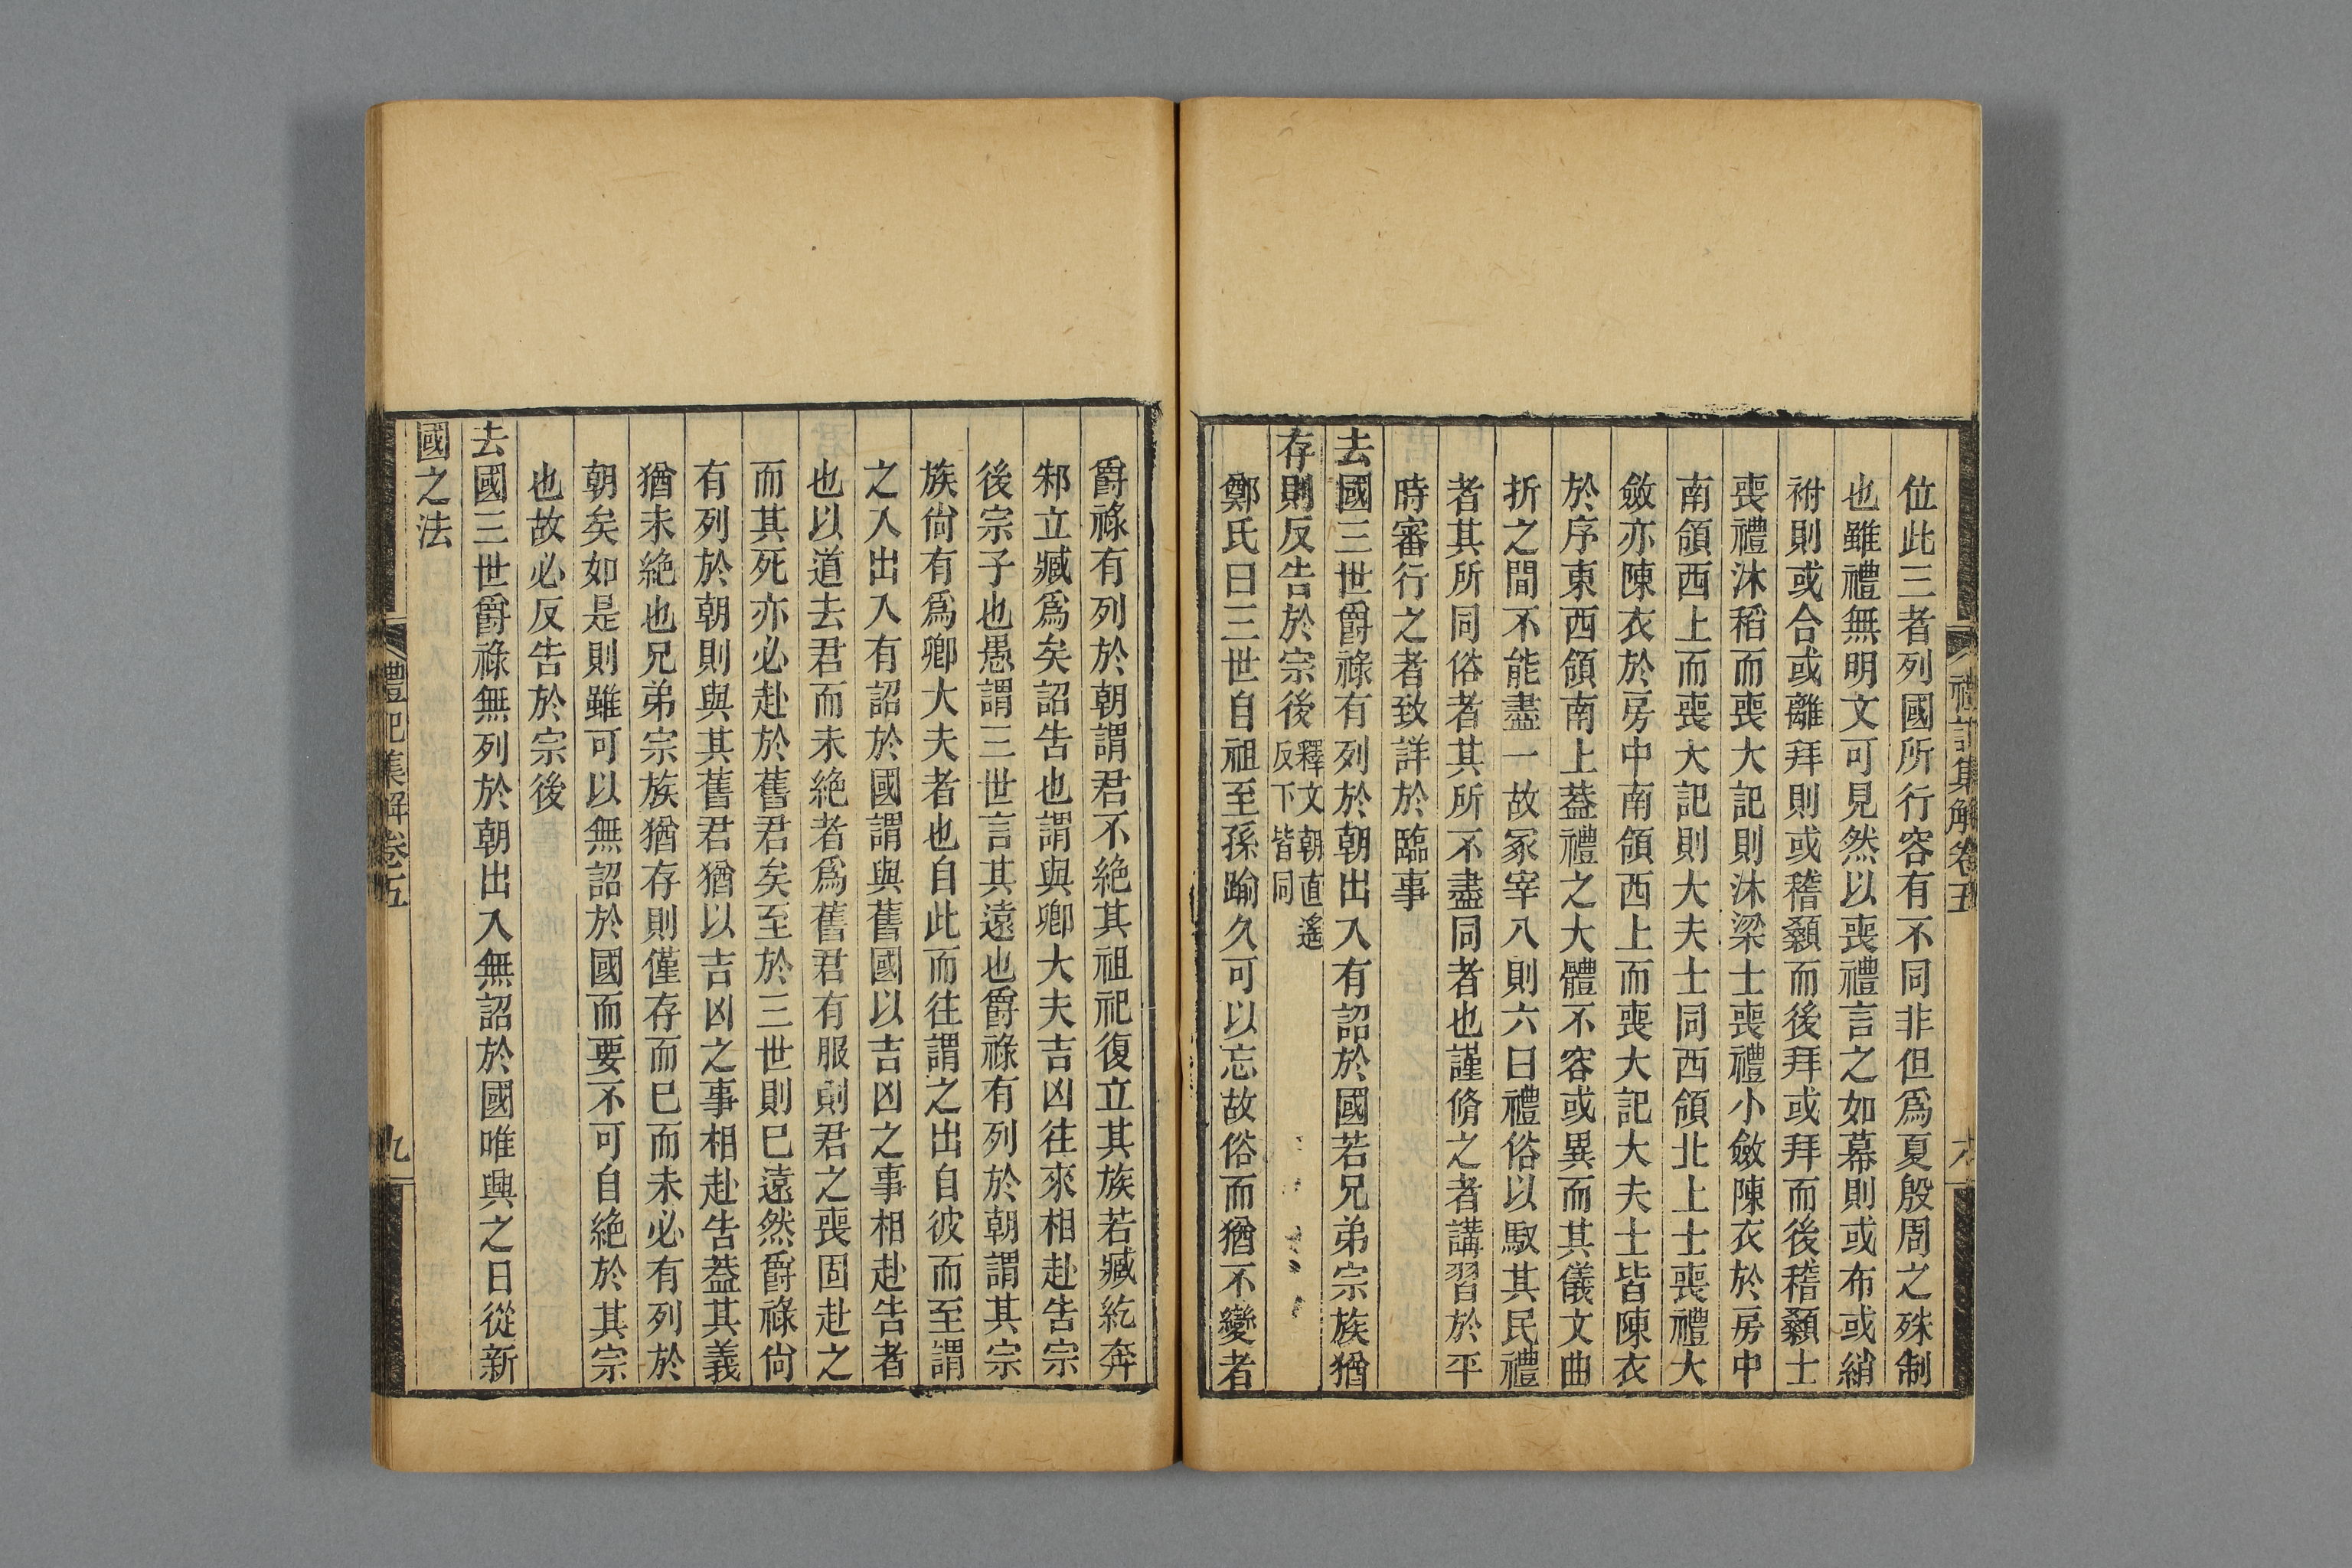 禮記集解卷五
位此三者列國所行容有不同非但爲夏殷周之殊制
也雖禮無明文可見然以喪禮言之如幕則或布或綃
祔則或合或離拜則或稽顙而後拜或拜而後稽顙士
喪禮沐稻而喪大記則沐梁士喪禮小斂陳衣於房中
南領西上而喪大記則大夫士同西領北上士喪禮大
斂亦陳衣於房中南領西上而喪大記大夫士皆陳衣
於序東西領南上葢禮之大體不容或異而其儀文曲
折之間不能盡一故冢宰八則六曰禮俗以馭其民禮
者其所同俗者其所不盡同者也謹脩之者講習於平
時審行之者致詳於臨事
去國三世爵祿有列於朝出入有詔於國若兄弟宗族猶
存則反告於宗後釋文朝直遙反下皆同
鄭氏曰三世自祖至孫踰久可以忘故俗而猶不變者
爵祿有列於朝謂君不絶其祖祀復立其族若臧紇奔
邾立臧爲矣詔告也謂與卿大夫吉凶往來相赴告宗
後宗子也愚謂三世言其遠也爵祿有列於朝謂其宗
族尙有爲卿大夫者也自此而往謂之出自彼而至謂
之入出入有詔於國謂與舊國以吉凶之事相赴告者
也以道去君而未絶者爲舊君有服則君之喪固赴之
而其死亦必赴於舊君矣至於三世則巳遠然爵祿尙
有列於朝則與其舊君猶以吉凶之事相赴告葢其義
猶未絶也兄弟宗族猶存則僅存而巳而未必有列於
朝矣如是則雖可以無詔於國而要不可自絶於其宗
也故必反告於宗後
去國三世爵祿無列於朝出入無詔於國唯興之日從新
國之法
禮記集解卷五
九